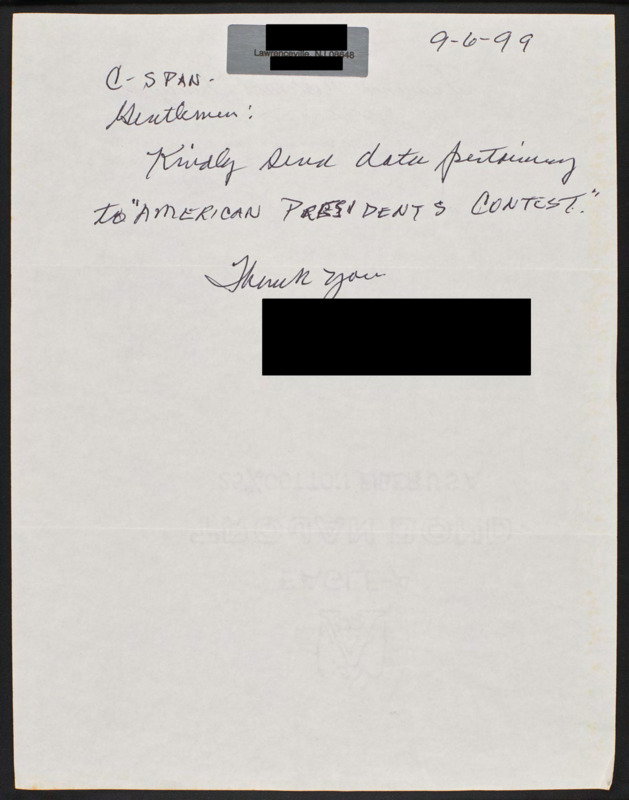 Lawrenceville, NJ 08648
9-6-99
C-SPAN-
Gentlemen:
Kindly send data pertaining
to "AMERICAN PRESIDENTS CONTEST."
Thank you